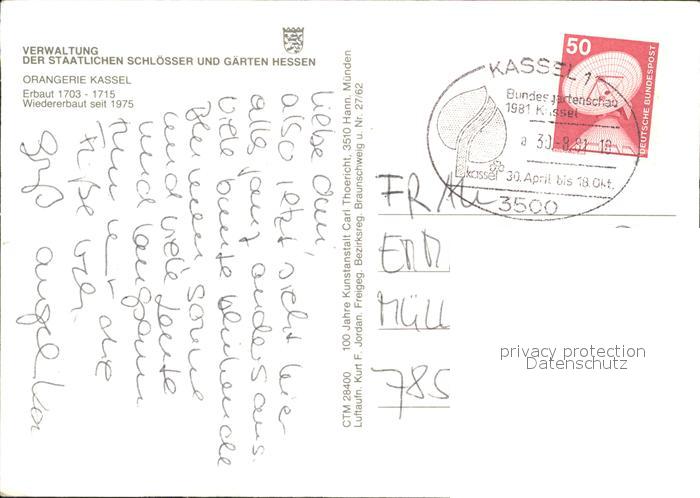 VERWALTUNG
DER STAATLICHEN SCHLÖSSER UND GÄRTEN HESSEN
ORANGERIE KASSEL
Erbaut 1703 - 1715
Wiedererbaut seit 1975
liebe
also jetzt sieht hier
alles ganz anders aus.
viele bunte blühende
Blumen Sonne
und viele Leute
und langsam
tun die
Füße weh.
Gruß Angelika
CTM 28400 100 Jahre Kunstanstalt Carl Thoericht, 3510 Hann. Münden
Luftaufn. Kurt F. Jordan. Freigeg. Bezirksreg. Braunschweig u. Nr. 27/62
50
DEUTSCHE BUNDESPOST
KASSEL 1
Bundesgartenschau
1981 Kassel
a 30.-8.81-18
kassel
30. April bis 18. Okt.
3500
FRAU
MÜLL
785
privacy protection
Datenschutz